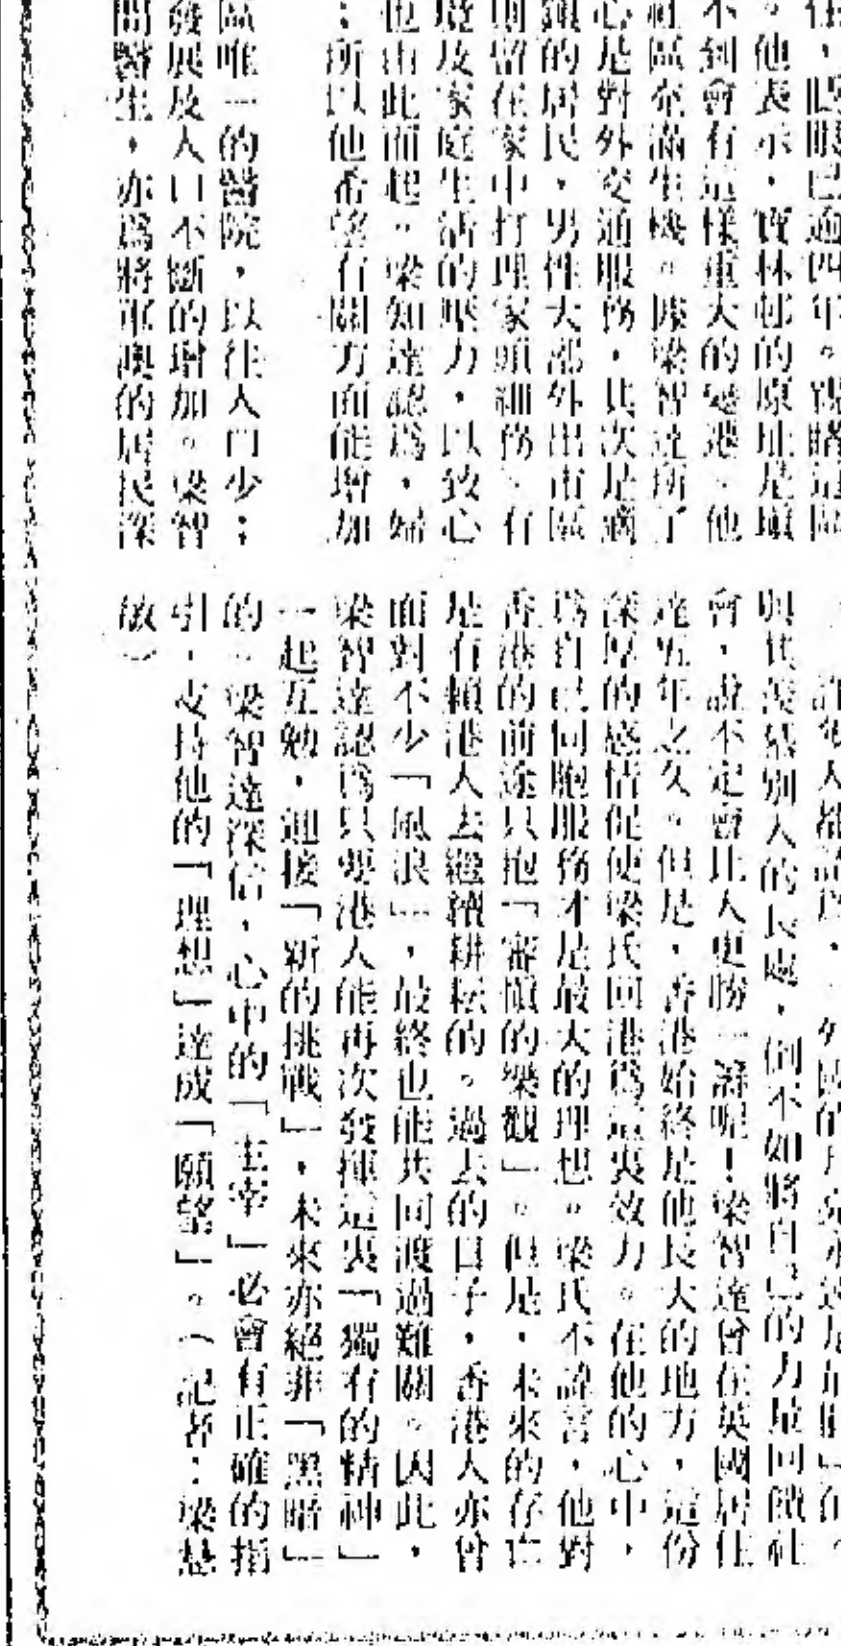 任，眨眼已過四年。親睹這區
。他表示，寶林邨的原址是墳
不到會有這樣重大的變遷。他
社區充滿生機。據梁智達所了
心是對外交通服務，其次是商
鎮的居民，男性大部外出市區
則留在家中打理家頭細務、有
境及家庭生活的壓力，以致心
也由此而起。梁知達認為，婦
；所以他希望有關方面能增加
區唯一的醫院，以往人口少；
發展及人口不斷的增加。梁智
間醫生，亦爲將軍澳的居民深
許多人都認爲，「外國的月亮永遠是
與其羨慕別人的長處，倒不如將自己的力量回饋社
會，說不定會比人更勝一籌呢！梁智達曾在英國居住
達五年之久。但是，香港始終是他長大的地方，這份
深厚的感情促使梁氏回港爲這裏效力。在他的心中，
爲自己同胞服務才是最大的理想。梁氏不諱言，他對
香港的前途只抱「審慎的樂觀」。但是，未來的存亡
是有賴港人去繼續耕耘的。過去的日子，香港人亦曾
面對不少「風浪」，最終也能共同渡過難關。因此，
梁智達認爲只要港人能再次發揮這裏「獨有的精神」
一起互勉，迎接「新的挑戰」，未來亦絕非「黑暗」
的。梁智達深信，心中的「主宰」必會有正確的指
引，支持他的「理想」達成「願望」。（記者：梁慧
敏）